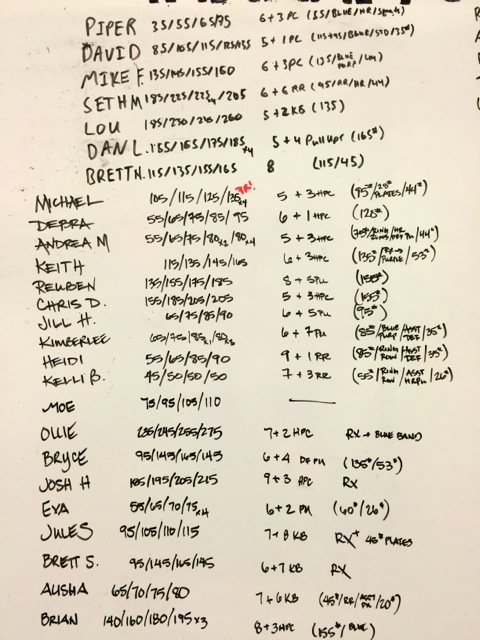 PIPER 35/55/65/75 6+3 PC
DAVID 85/105/115/ 5+1 PC
MIKE F. 135/145/155/160 6+3PC
SETH M 185/225/ /205 6+6 RR (95/RR/HR/44)
LOU 185/230/ /260 5+2KB (135)
DAN L. 155/165/175/185 x4 5+4 Pull Ups (165#)
BRETT N. 115/135/155/165 8 (115/45)
MICHAEL 105/115/125/135 x4 PR! 5+3HPC (95#/25# PLATES/44#)
DEBRA 55/65/75/85/95 6+1HPC (120#)
ANDREA M 55/65/75/80x2/80x4 5+3HPC
KEITH 115/135/145/165 6+3HPC (135#/RX→ PURPLE/53#)
REUBEN 135/155/175/185 8+5PU
CHRIS D. 155/185/205/205 5+3HPC (155#)
JILL H. 65/75/85/90 6+5PU (95#)
KIMBERLEE 6+7PU (85#/BLUE PURP/ASST DEF/35#)
HEIDI 55/65/85/90 9+1RR (85#/RING ROW/ASST DEF/35#)
KELLI B. 45/50/50/50 7+3RR (55#/RING ROW/ASST HRPU/26#)
MOE 75/95/105/110 —
OLLIE 235/245/255/275 7+2HPC RX→BLUE BAND
BRYCE 95/145/165/145 6+4 DEF PU (135#/53#)
JOSH H 185/195/205/215 9+3 HPC RX
EVA 55/65/70/75x4 6+2 PU (40#/26#)
JULES 95/105/110/115 7+8KB RX+ 45# PLATES
BRETT S. 95/145/165/145 6+7KB RX
ALISHA 65/70/75/80 7+6KB (45#/RR/ASST PU/20#)
BRIAN 140/160/180/195x3 8+3HPC (155#/BLUE)